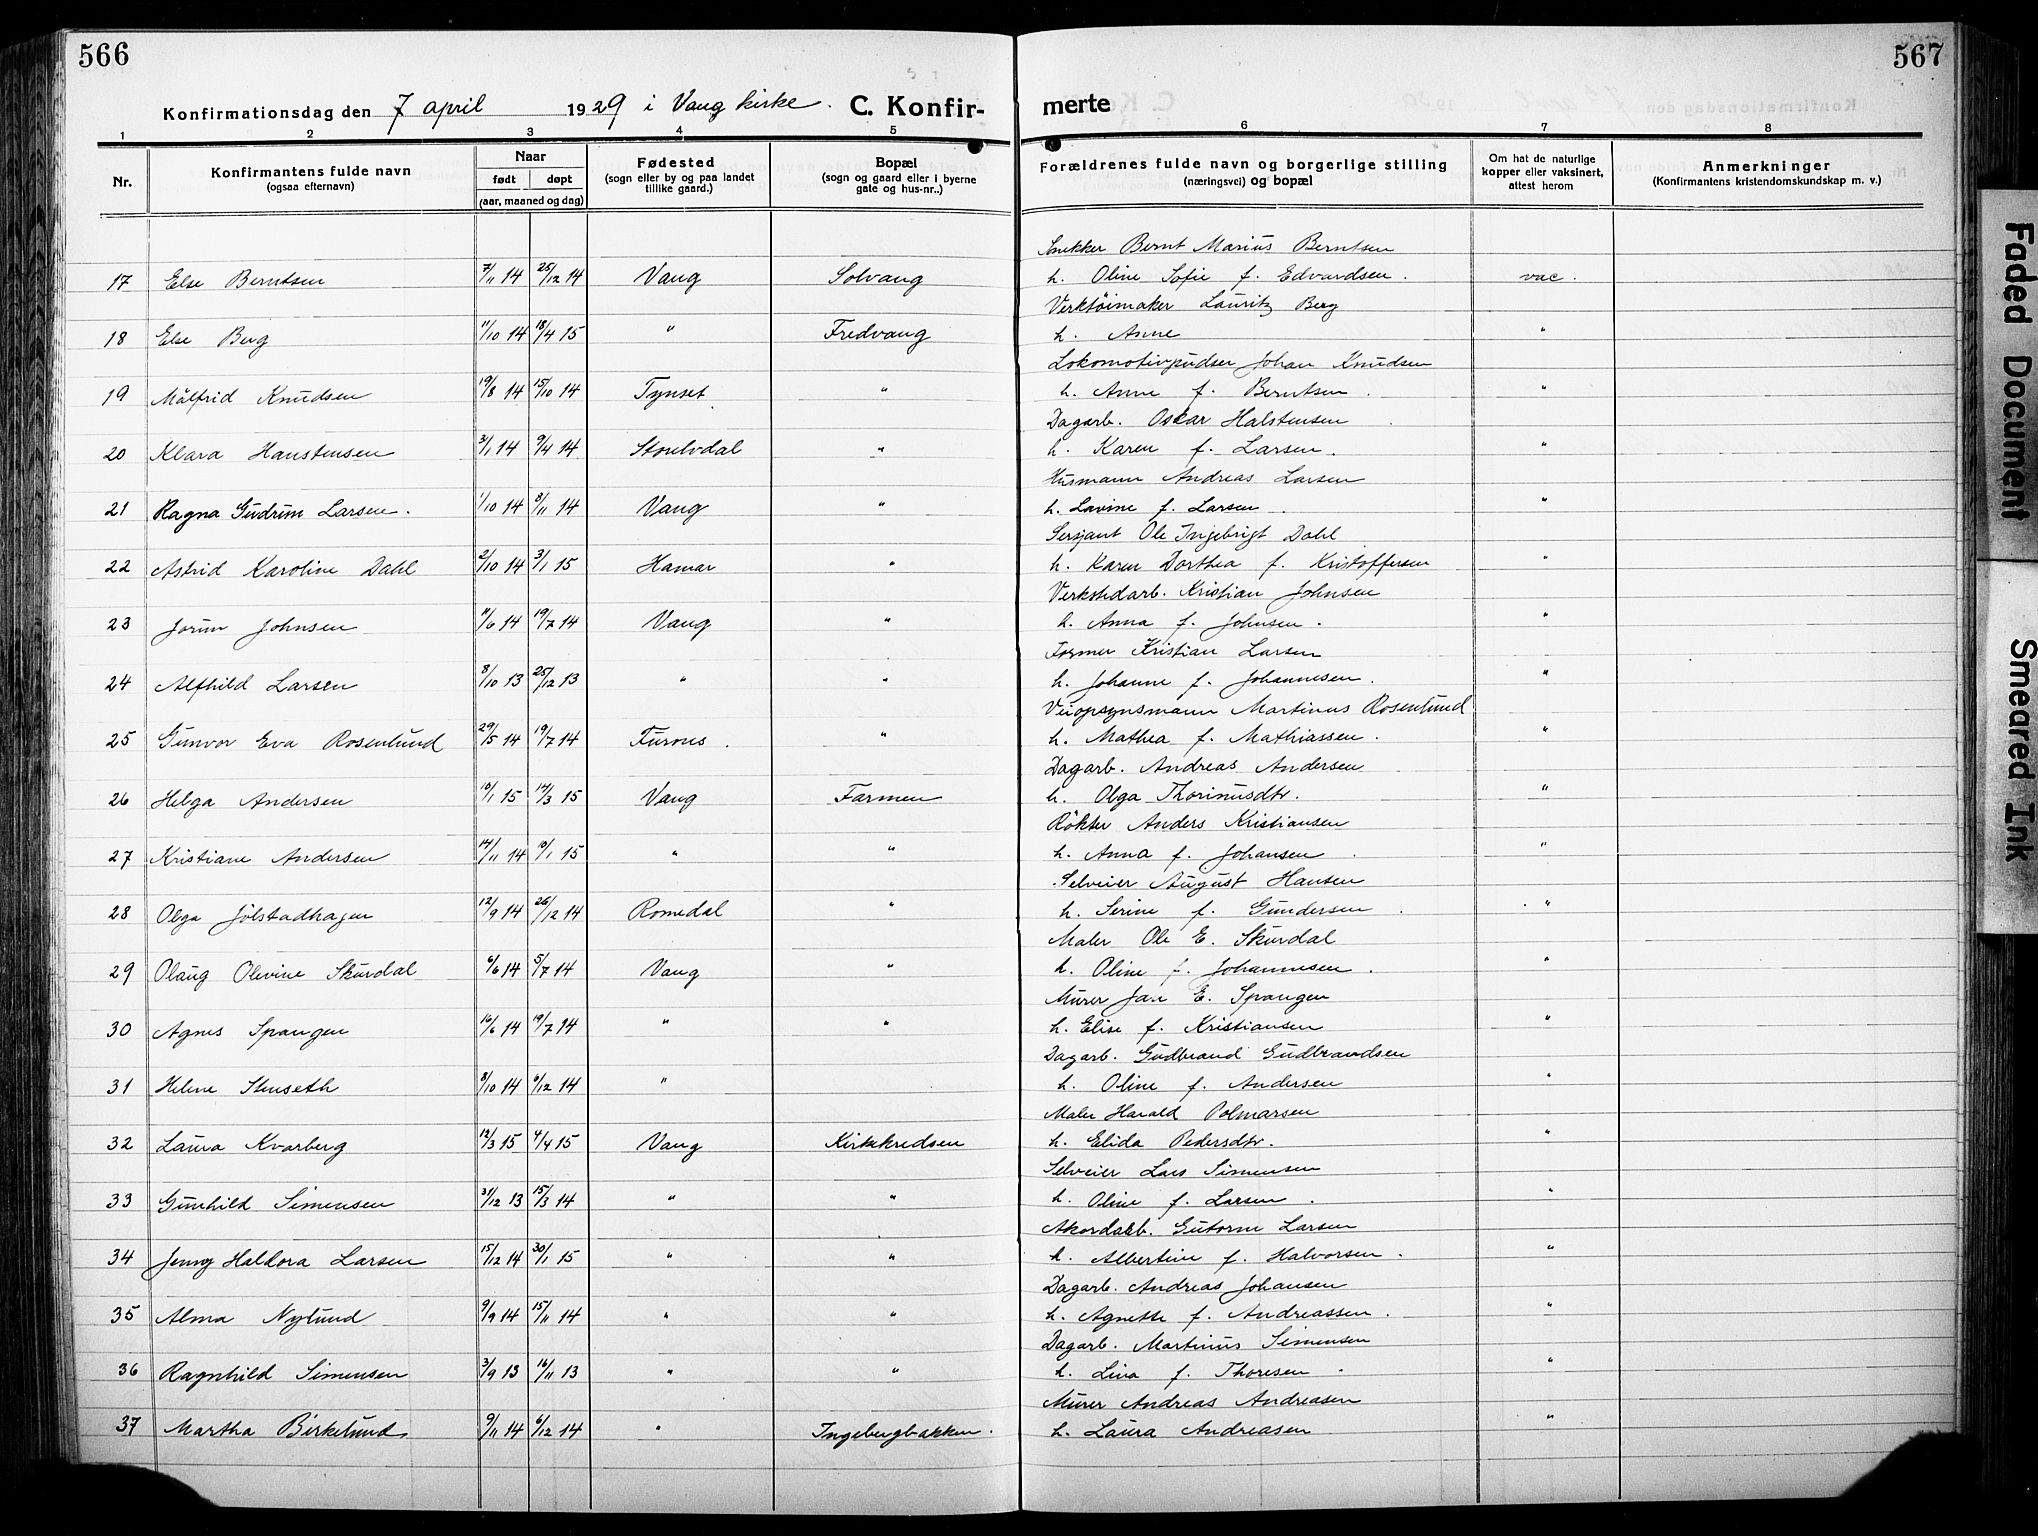 566
567
Konfirmationsdag den 7 april 1929 i Vang kirke. C. Konfir- merte
1 2 3 4 5 6 7 8
Nr.
Konfirmantens fulde navn
(ogsaa efternavn)
Naar
født døpt
(aar, maaned og dag)
Fødested
(sogn eller by og paa landet
tillike gaard.)
Bopæl
(sogn og gaard eller i byerne
gate og hus-nr..)
Forældrenes fulde navn og borgerlige stilling
(næringsvei) og bopæl
Om hat de naturlige
kopper eller vaksinert,
attest herom
Anmerkninger
(Konfirmantens kristendomskundskap m. v.)
Snekker Bernt Marius Berntsen
17 Else Berntsen 7/11 14 25/12 14 Vang Solvang h. Oline Sofie f. Edvardsen. vac.
Verktöimaker Lauritz Berg
18 Else Berg 11/10 14 18/4 15 " Fredvang h. Anne "
Lokomotivpudser Johan Knudsen
19 Målfrid Knudsen 19/8 14 15/10 14 Tynset " h. Anne f. Berntsen. "
Dagarb. Oskar Halstensen
20 Klara Hanstensen 3/1 14 9/4 14 Storelvdal " h. Karen f. Larsen. "
Husmann Andreas Larsen
21 Ragna Gudrun Larsen. 1/10 14 8/11 14 Vang " h. Lavine f. Larsen. "
Sersjant Ole Ingebrigt Dahl
22 Astrid Karoline Dahl 2/10 14 3/1 15 Hamar " h. Karen Dorthea f. Kristoffersen "
Verkstedarb. Kristian Johnsen
23 Jorun Johnsen 11/6 14 19/7 14 Vang " h. Anna f. Johnsen. "
Former Kristian Larsen
24 Alfhild Larsen 8/10 13 25/12 13 " " h. Johanne f. Johannesen. "
Veiopsynsmann Martinus Rosenlund
25 Gunvor Eva Rosenlund 29/5 14 19/7 14 Furnes. " h. Mathea f. Mathiassen. "
Dagarb. Andreas Andersen
26 Helga Andersen 10/1 15 14/3 15 Vang Farmen h. Olga Thorinusdtr. "
Rökter Anders Kristiansen
27 Kristiane Andersen 14/11 14 10/1 15 " " h. Anna f. Johansen. "
Selveier August Hansen
28 Olga Jölstadhagen 12/9 14 26/12 14 Romedal " h. Serine f. Gundersen. "
Maler Ole E. Skurdal
29 Olaug Olevine Skurdal 6/6 14 5/7 14 Vang " h. Oline f. Johannesen. "
Murer Jan E. Spangen
30 Agnes Spangen 16/6 14 19/7 14 " " h. Elise f. Kristiansen "
Dagarb. Gudbrand Gudbrandsen
31 Helene Stenseth 8/10 14 6/12 14 " h. Oline f. Andersen "
Maler Harald Polmarsen
32 Laura Kvarberg 12/3 15 4/4 15 Vang Kirkekredsen h. Elida Pedersdtr. "
Selveier Lars Simensen
33 Gunhild Simensen 31/12 13 15/3 14 " " h. Oline f. Larsen. "
Akordarb. Gutorm Larsen
34 Jenny Haldora Larsen 15/12 14 30/1 15 " " h. Albertine f. Halvorsen. "
Dagarb. Andreas Johansen
35 Alma Nylund 9/9 14 15/11 14 " " h. Agnethe f. Andreassen. "
Dagarb. Martinus Simensen
36 Ragnhild Simensen 3/9 13 16/11 13 " " h. Lina f. Thoresen. "
Murer Andreas Andreasen
37 Martha Birkelund 9/11 14 6/12 14 " Ingebergbakken. h. Laura Andreasen "
Faded Document
Smeared Ink